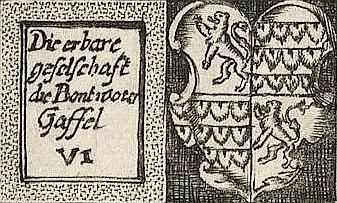 Die erbare
geselschaft
die Bontwoter
Gaffel
VI